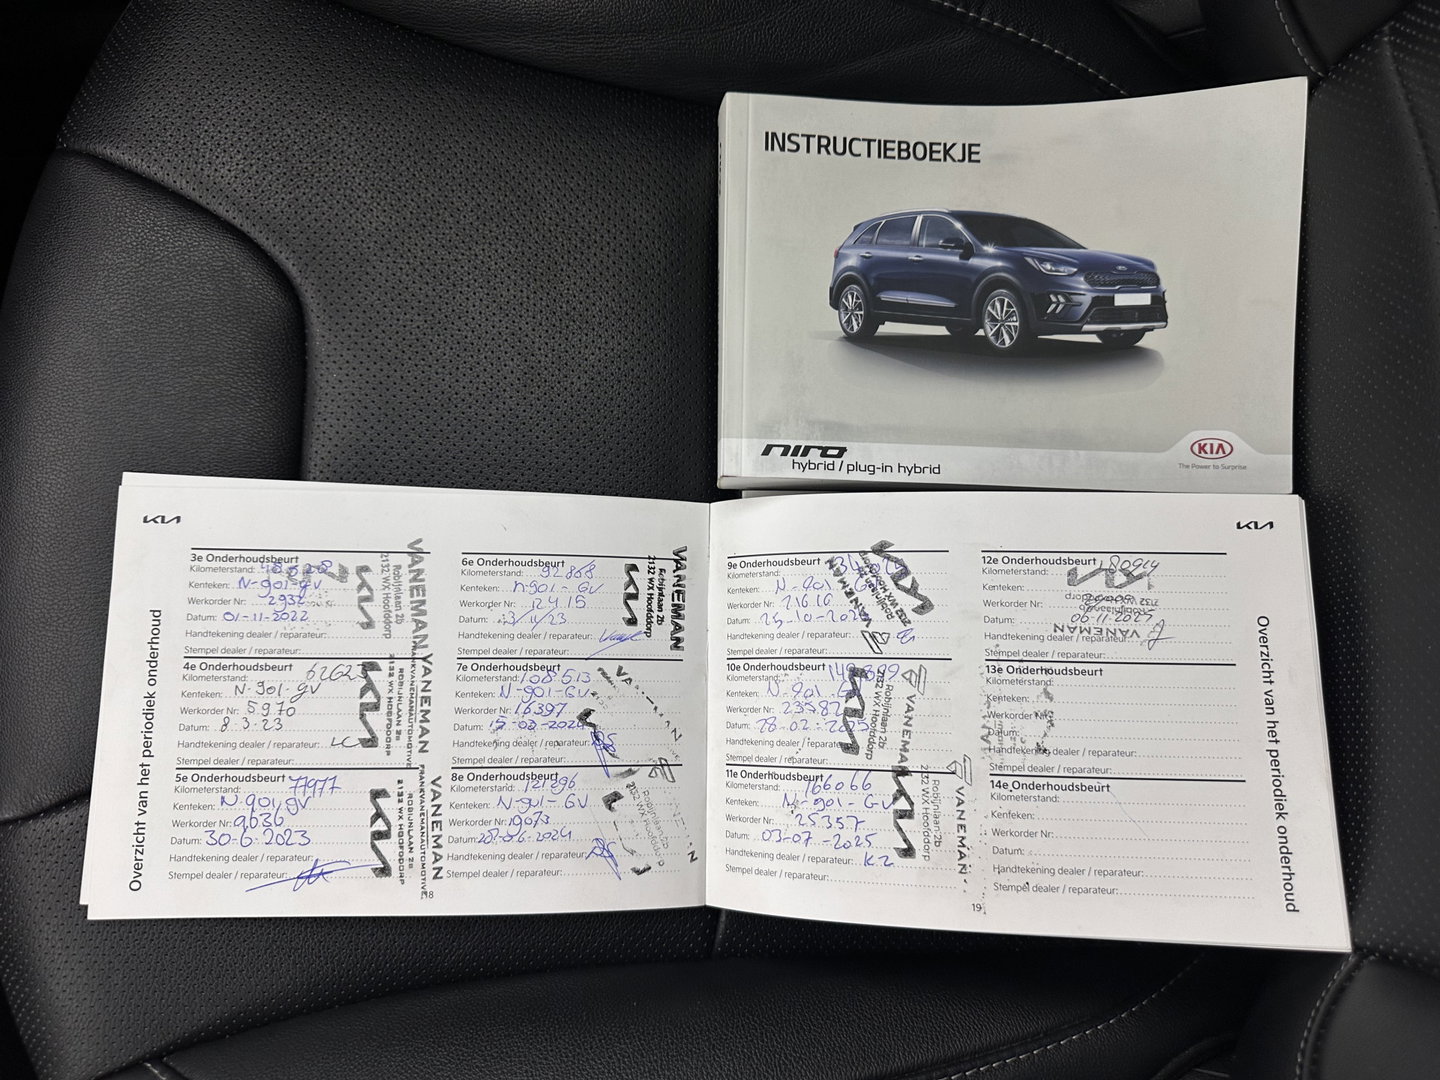 INSTRUCTIEBOEKJE
niro
hybrid / plug-in hybrid
KIA
The Power to Surprise
KIA
Overzicht van het periodiek onderhoud
3e Onderhoudsbeurt
Kilometerstand:
Kenteken: N-901-GV
Werkorder Nr: 2932
Datum: 01-11-2022
Handtekening dealer / reparateur:
Stempel dealer / reparateur:
KIA
VANEMAN
Robijnlaan 2b
2132 WX Hoofddorp
4e Onderhoudsbeurt
Kilometerstand:
Kenteken: N-901-GV
Werkorder Nr: 5970
Datum: 8.3.23
Handtekening dealer / reparateur: LC
Stempel dealer / reparateur:
KIA
VANEMAN
FRANKVANEMANAUTOMOTIVE
ROBIJNLAAN 2B
2132 WX HOOFDDORP
5e Onderhoudsbeurt
Kilometerstand: 77977
Kenteken: N-901 gv
Werkorder Nr: 9636
Datum: 30-6-2023
Handtekening dealer / reparateur:
Stempel dealer / reparateur:
KIA
VANEMAN
FRANKVANEMANAUTOMOTIVE
ROBIJNLAAN 2B
2132 WX HOOFDDORP
18
6e Onderhoudsbeurt
Kilometerstand: 92868
Kenteken: n-901-GV
Werkorder Nr: 12415
Datum:
Handtekening dealer / reparateur:
Stempel dealer / reparateur:
KIA
VANEMAN
Robijnlaan 2b
2132 WX Hoofddorp
7e Onderhoudsbeurt
Kilometerstand: 108513
Kenteken: N-901-GV
Werkorder Nr: 16397
Datum: 15-02-2024
Handtekening dealer / reparateur:
Stempel dealer / reparateur:
8e Onderhoudsbeurt
Kilometerstand: 121296
Kenteken: N-901-GV
Werkorder Nr: 19073
Datum: 28-06-2024
Handtekening dealer / reparateur:
Stempel dealer / reparateur:
Robijnlaan 2b
2132 WX Hoofddorp
KIA
9e Onderhoudsbeurt
Kilometerstand:
Kenteken: N-901-G
Werkorder Nr: 21616
Datum: 25-10-202
Handtekening dealer / reparateur:
Stempel dealer / reparateur:
KIA
VANEMAN
Robijnlaan 2b
2132 WX Hoofddorp
10e Onderhoudsbeurt
Kilometerstand:
Kenteken: N-901-G
Werkorder Nr: 23782
Datum: 28-02-2025
Handtekening dealer / reparateur:
Stempel dealer / reparateur:
KIA
VANEMAN
Robijnlaan 2b
2132 WX Hoofddorp
11e Onderhoudsbeurt
Kilometerstand: 166066
Kenteken: N-901-GV
Werkorder Nr: 25357
Datum: 03-07-2025
Handtekening dealer / reparateur: K.Z
Stempel dealer / reparateur:
KIA
VANEMAN
Robijnlaan 2b
2132 WX Hoofddorp
19
12e Onderhoudsbeurt
Kilometerstand:
Kenteken:
Werkorder Nr:
Datum:
Handtekening dealer / reparateur:
Stempel dealer / reparateur:
KIA
VANEMAN
Robijnlaan 2b
2132 WX Hoofddorp
13e Onderhoudsbeurt
Kilometerstand:
Kenteken:
Werkorder Nr:
Datum:
Handtekening dealer / reparateur:
Stempel dealer / reparateur:
14e Onderhoudsbeurt
Kilometerstand:
Kenteken:
Werkorder Nr:
Datum:
Handtekening dealer / reparateur:
Stempel dealer / reparateur:
Overzicht van het periodiek onderhoud